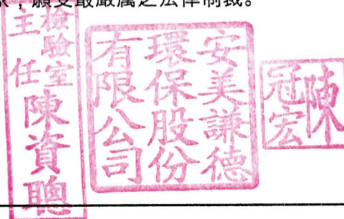 願受最嚴厲之法律制裁。
檢驗室
主任
陳資聰
安美謙德
環保股份
有限公司
陳冠宏